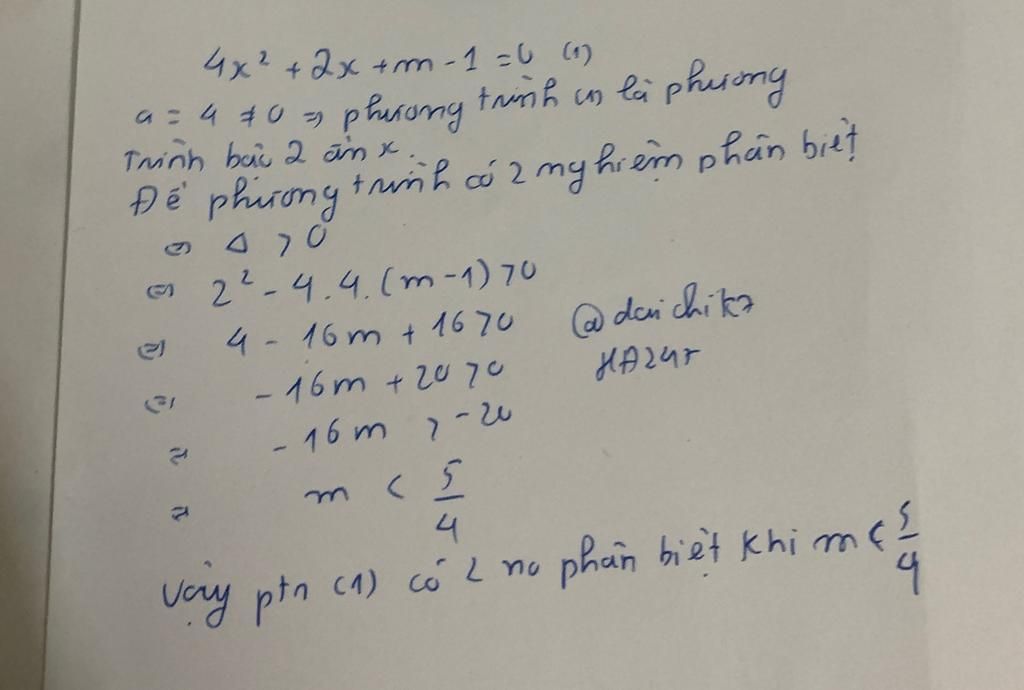 4x² + 2x + m - 1 = 0 (1)
a = 4 ≠ 0 => phương trình (1) là phương
trình bậc 2 ẩn x.
Để phương trình có 2 nghiệm phân biệt
<=> Δ > 0
<=> 2² - 4.4.(m-1) > 0
<=> 4 - 16m + 16 > 0 @daichik7
<=> - 16m + 20 > 0
<=> - 16m > - 20
<=> m < 5/4
Vậy ptn (1) có 2 no phân biệt khi m < 5/4